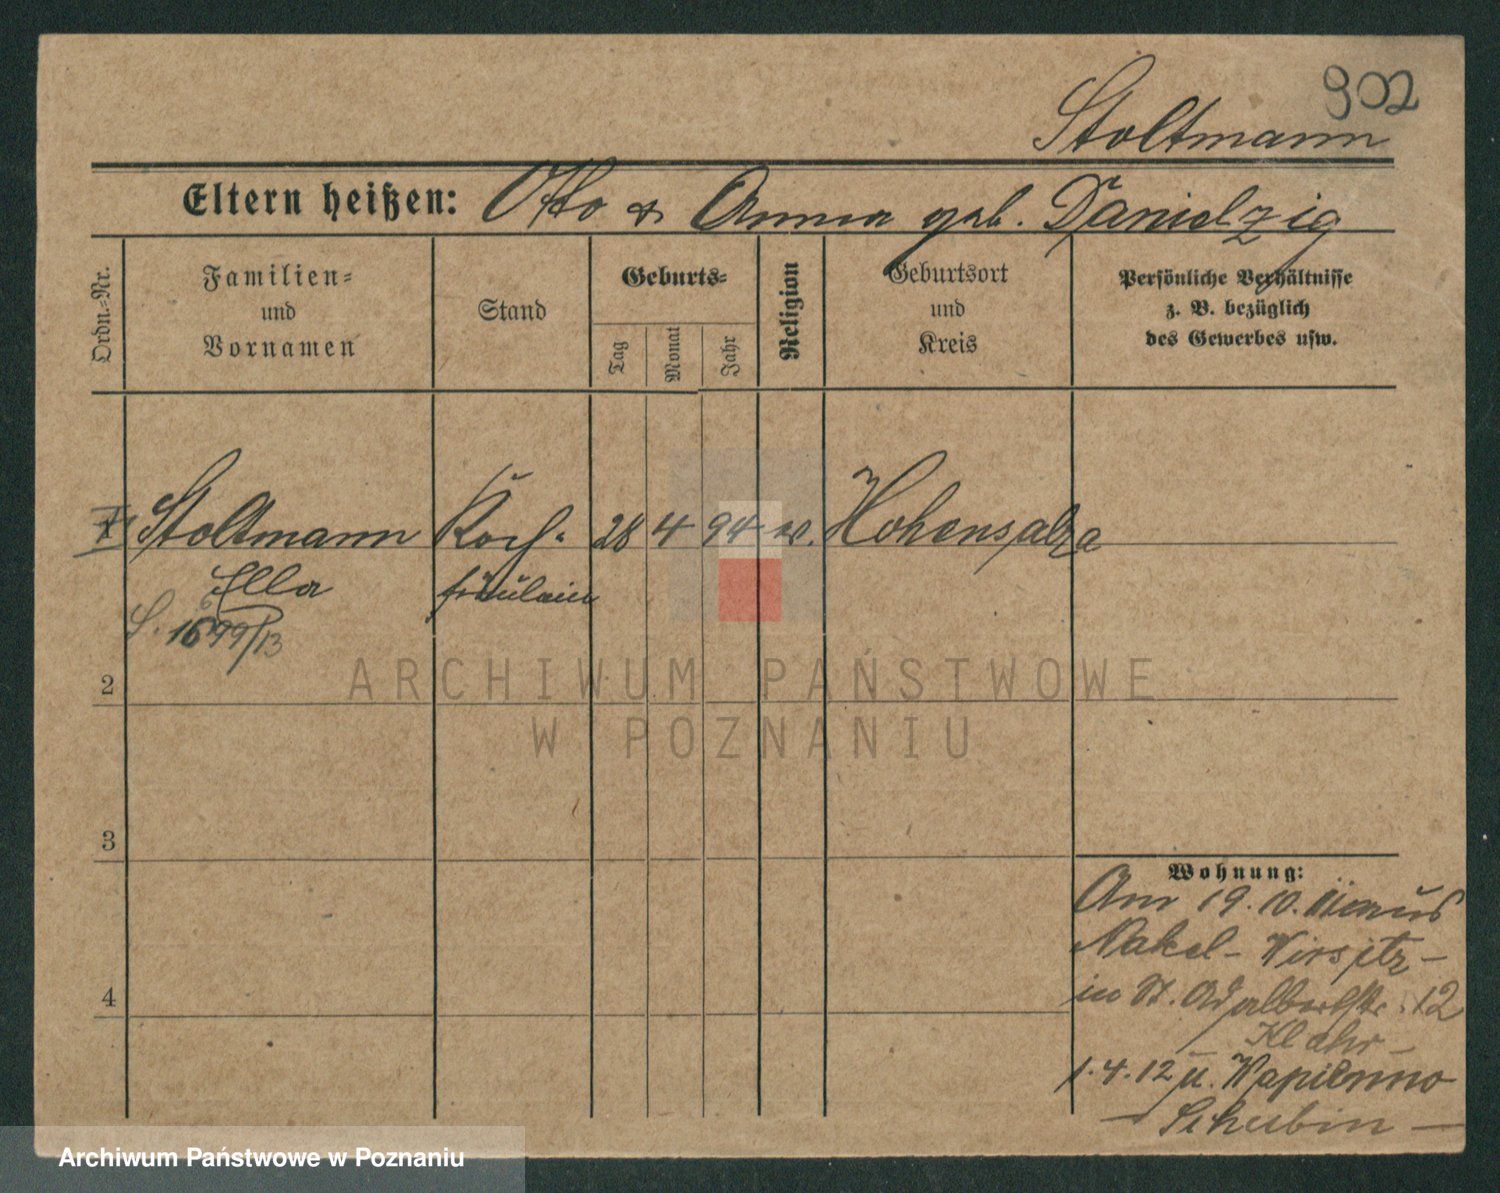 902
Stoltmann
Eltern heißen: Otto & Anna geb. Danielzig
Ordn.-Nr.
Familien-
und
Vornamen
Stand
Geburts-
Tag
Monat
Jahr
Religion
Geburtsort
und
Kreis
Persönliche Verhältnisse
z. B. bezüglich
des Gewerbes usw.
1 Stoltmann Koch- 28 4 94 Hohensalza
Ella fräulein
S. 1699/13
ARCHIWUM PAŃSTWOWE
W POZNANIU
2
3
4
Wohnung:
Am 19. 10. 11 aus
Nakel - Wirsitz -
in St. Adalbertstr. 12
1.4.12 u. Wapienno
- Schubin -
Archiwum Państwowe w Poznaniu